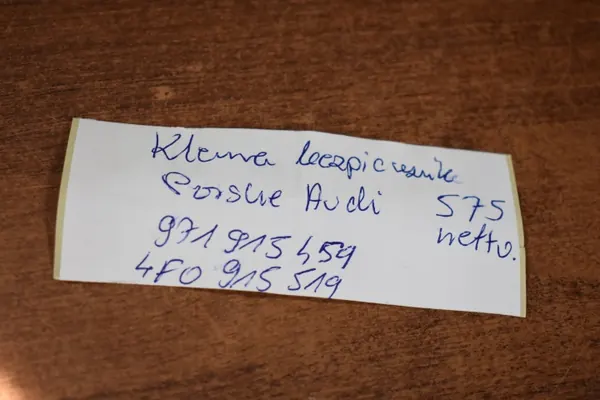 Klema bezpiecznika
Porsche Audi 575
netto.
971 915 459
4F0 915 519